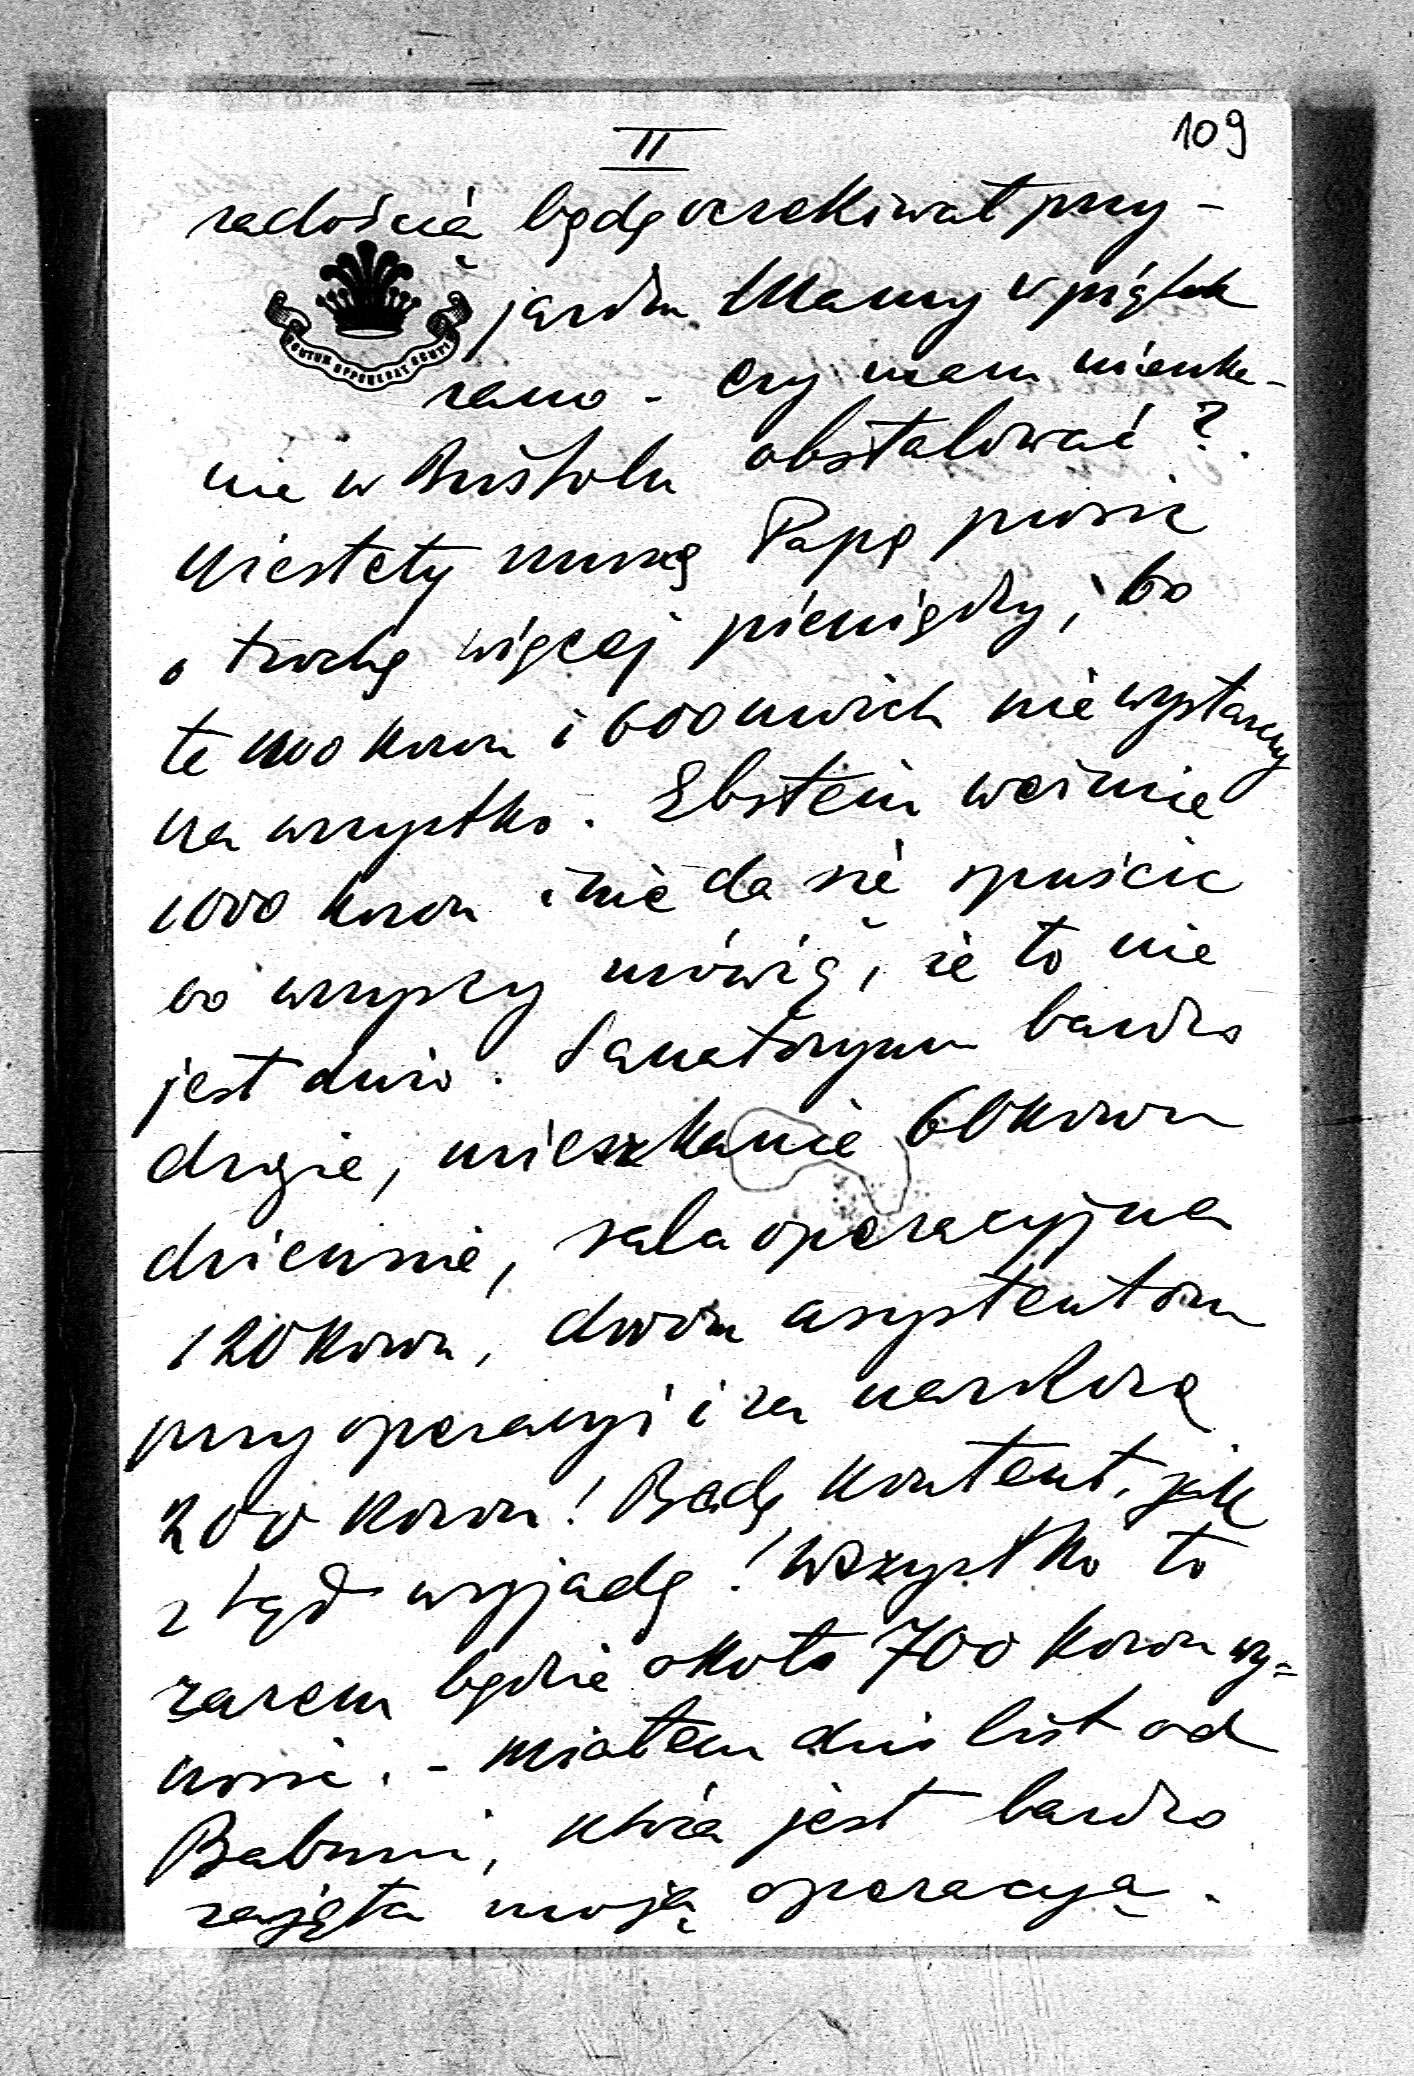 109
II
radością będę oczekiwał przy-
jazdu Mamy w piątek
SCUTUM OPPONEBAT SCUTIS
rano - czy mam mieszka-
nie w Bristolu obstalować?
Niestety muszę Papę prosić
o trochę więcej pieniędzy, bo
te koron i 600 moich nie wystarczy
na wszystko. Ebstein weźmie
1000 koron i nie da się opuścić
bo wszyscy mówią, że to nie
jest dużo. Sanatoryum bardzo
drogie, mieszkanie 60 koron
dziennie, sala operacyjna
120 koron, dwom asystentom
przy operacyi i za narkozę
200 koron! Będę kontent, jak
ztąd wyjadę! Wszystko to
razem będzie około 700 koron wy-
nosić. - Miałem dziś list od
Babuni, która jest bardzo
zajęta moją operacyą.